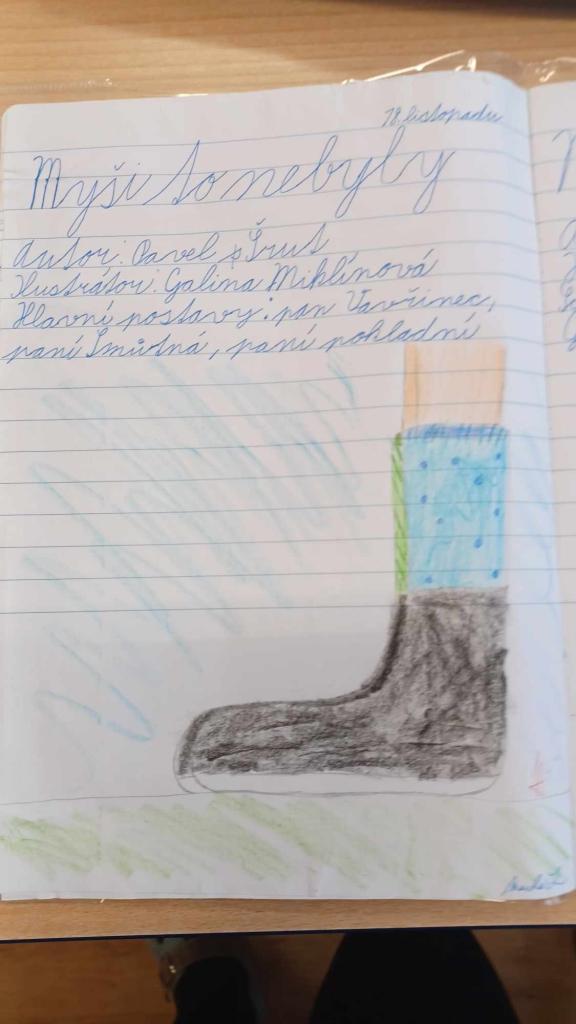 18. listopadu
Myši to nebyly
Autor: Pavel Šrut
Ilustrátor: Galina Miklínová
Hlavní postavy: pan Vavřinec,
paní Smutná, paní pokladní